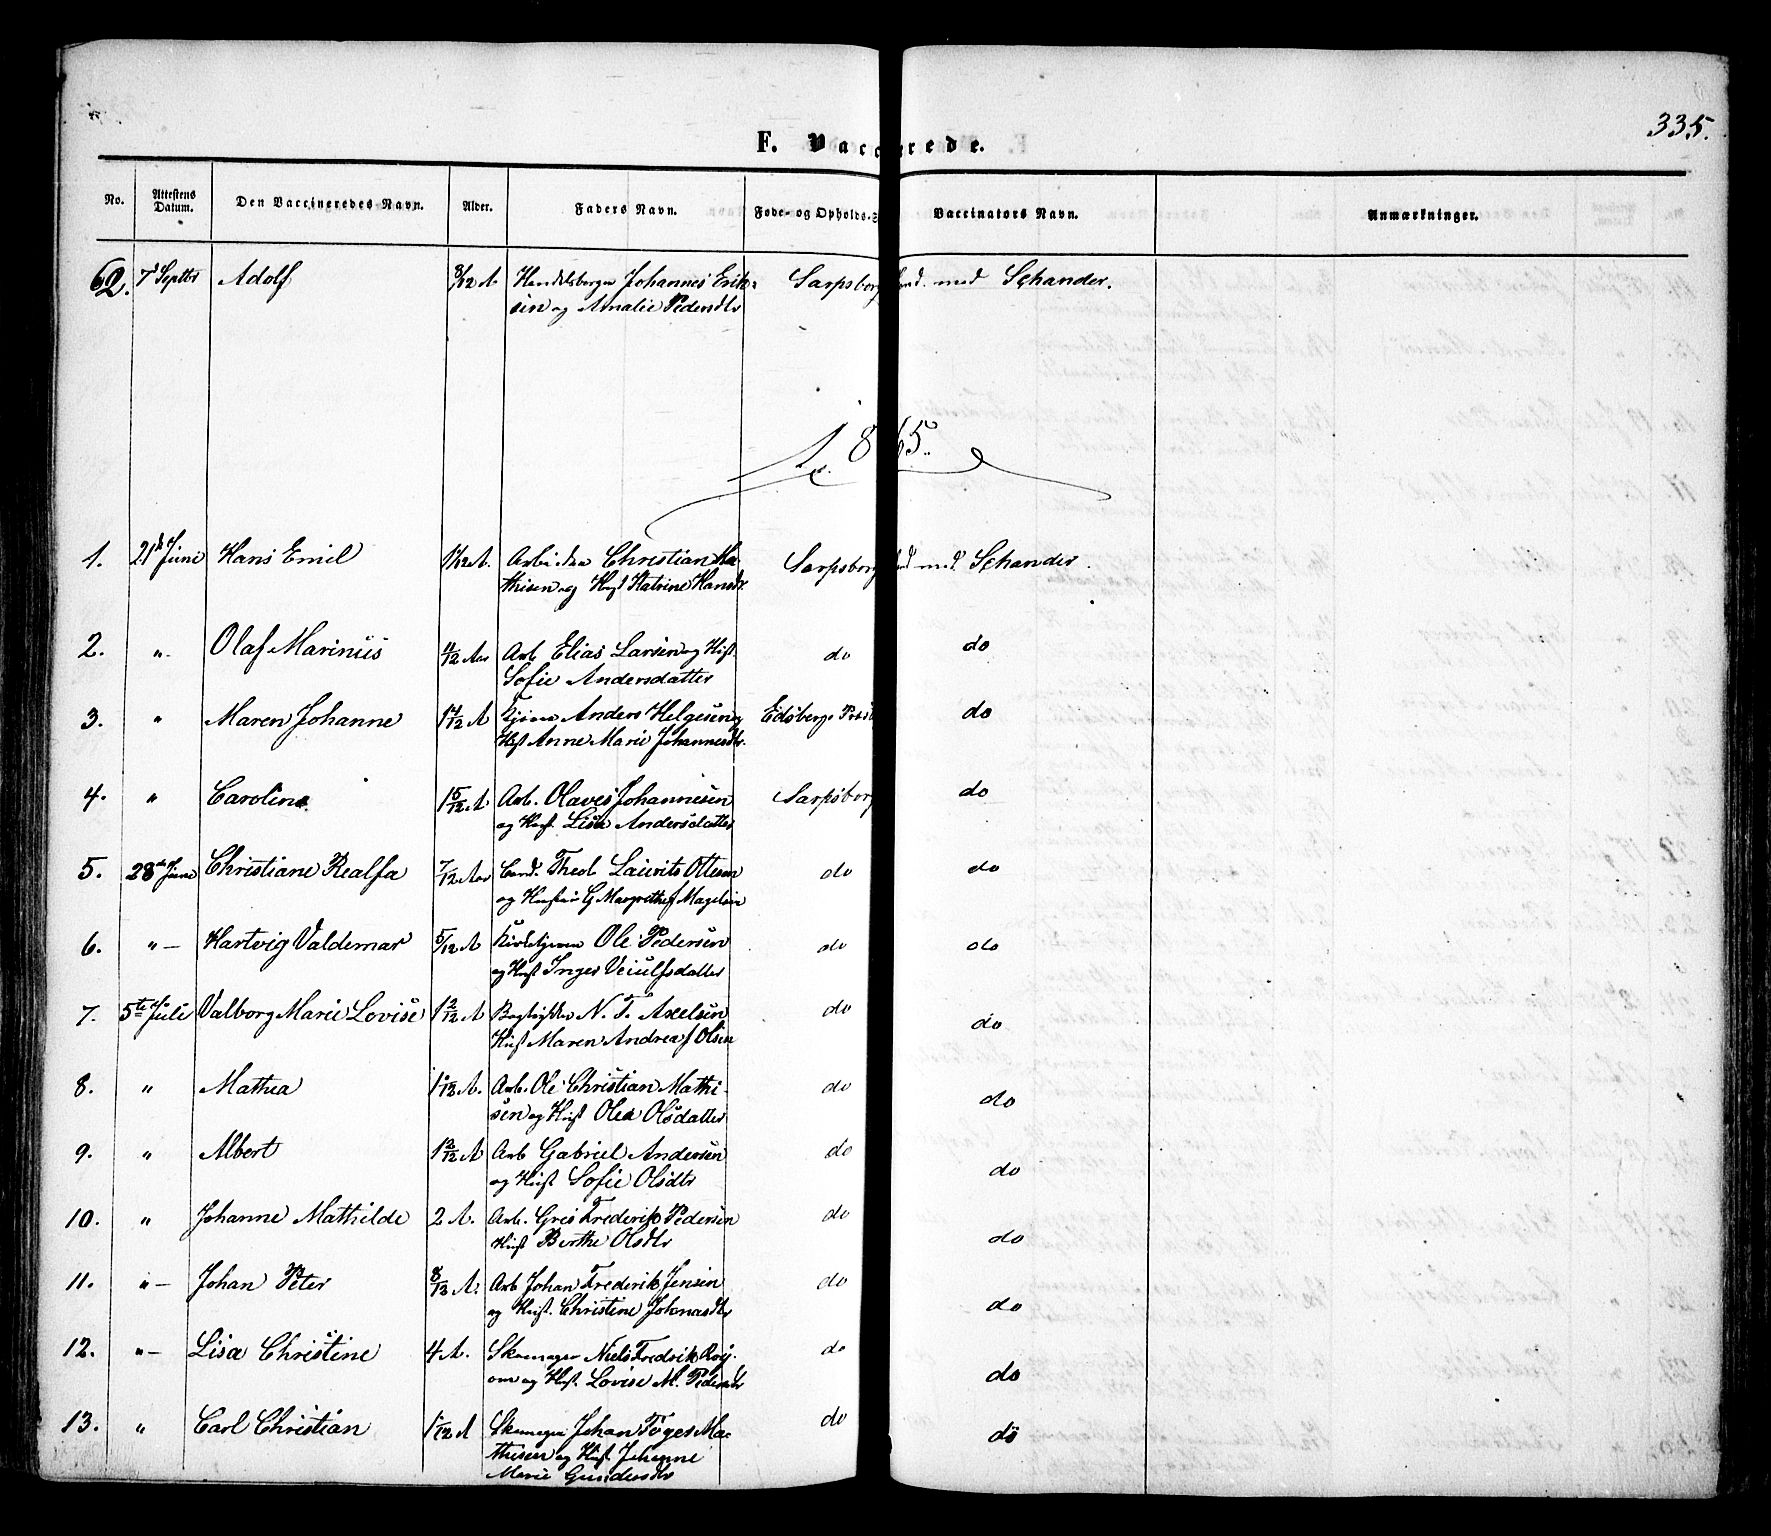 335.
F. Vacc rede.
No. Attestens Datum. Den Vaccineredes Navn. Alder. Faders Navn. Føde- og Opholds-S Vaccinators Navn. Anmærkninger.
62. 7 Septbr Adolf 8/12 A Johannes Erik- Sarpsborg med Schander.
sen og Amalie Pedersdtr
1865.
1. 21 Juni Hans Emil Christian Ma- Sarpsborg med Schander.
thisen og Hust Katrine Hansdtr
2. " Olaf Marinus 4/12 Aar Arb Elias Larsen og Hust. do do
Sofie Andersdatter
3. " Maren Johanne 1 4/12 A Anders Helgesen og Edsberg Præst do
Hust Anne Marie Johannesdtr.
4. " Caroline 1 5/12 A Arb. Olaves Johannesen Sarpsborg do
og Hust. Lisa Andersdatter
5. 28 Juni Christiane Realfa 7/12 Aar Cand. Theol. Laurits Ottesen do do
og Hustru G Margrethe f Magelsen
6. " — Hartvig Valdemar 5/12 A Ole Pedersen do do
og Hust Inger Veiulfsdatter
7. 5te Juli Valborg Marie Lovise 1 2/12 A N. T. Axelsen do do
Hust Maren Andrea f Olsen
8. " Mathea Arb. Ole Christian Mathi- do do
sen og Hust Olea Olsdatter
9. " Albert 1 2/12 A Arb Gabriel Andersen do do
og Hust Sofie Olsdtr
10. " Johanne Mathilde 2 A. Arb. Frederik Pedersen do do
Hust Berthe Olsdtr
11. " — Johan Peter 8/12 A. Arb Johan Frederik Jensen do do
og Hust. Christine Johnasdtr
12. " — Lisa Christine 4 A. Skomager Niels Fredrik do do
og Hust. Lovise M. Pedersdtr
13. " Carl Christian Skomager Johan Ma- do do
thisen og Hust Johanne
Marie Gundersdtr